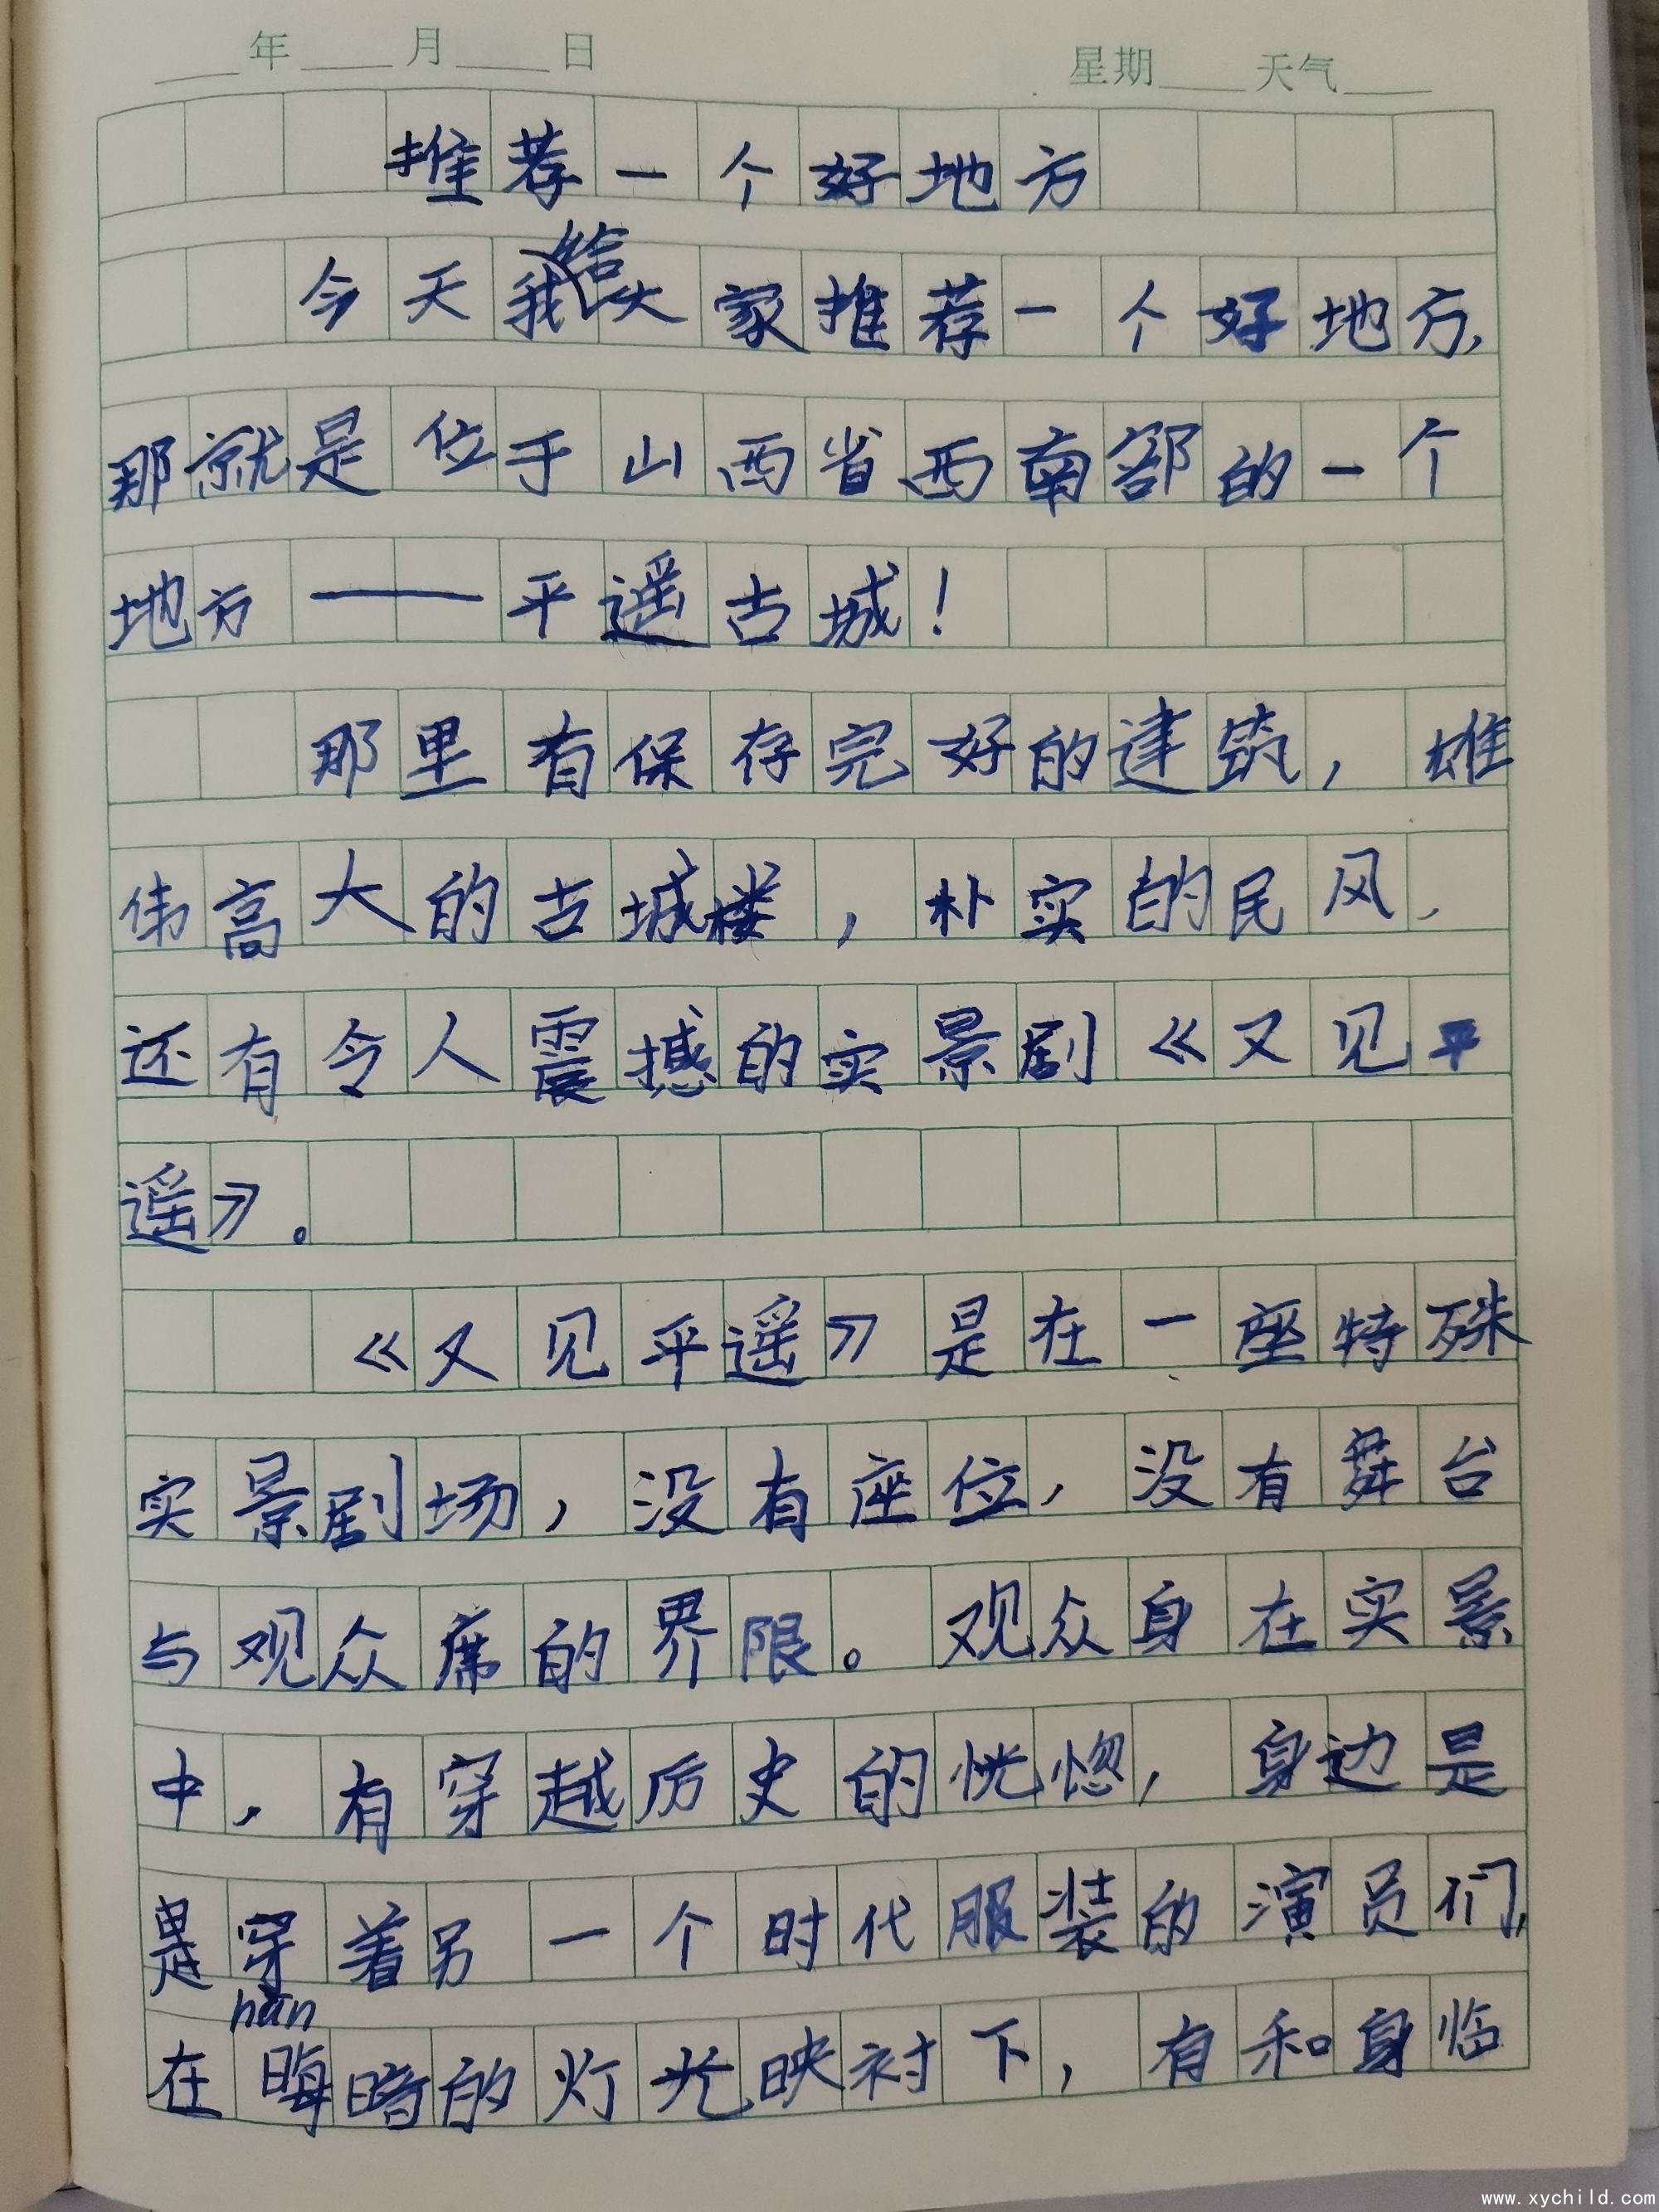 年 月 日 星期 天气
推荐一个好地方
今天我给大家推荐一个好地方,
那就是位于山西省西南部的一个
地方——平遥古城!
那里有保存完好的建筑,雄
伟高大的古城楼,朴实的民风,
还有令人震撼的实景剧《又见平
遥》。
《又见平遥》是在一座特殊
实景剧场,没有座位,没有舞台
与观众席的界限。观众身在实景
中,有穿越历史的恍惚,身边是
是穿着另一个时代服装的演员们,
nän
在晦暗的灯光映衬下,有和身临
www.xychild.com